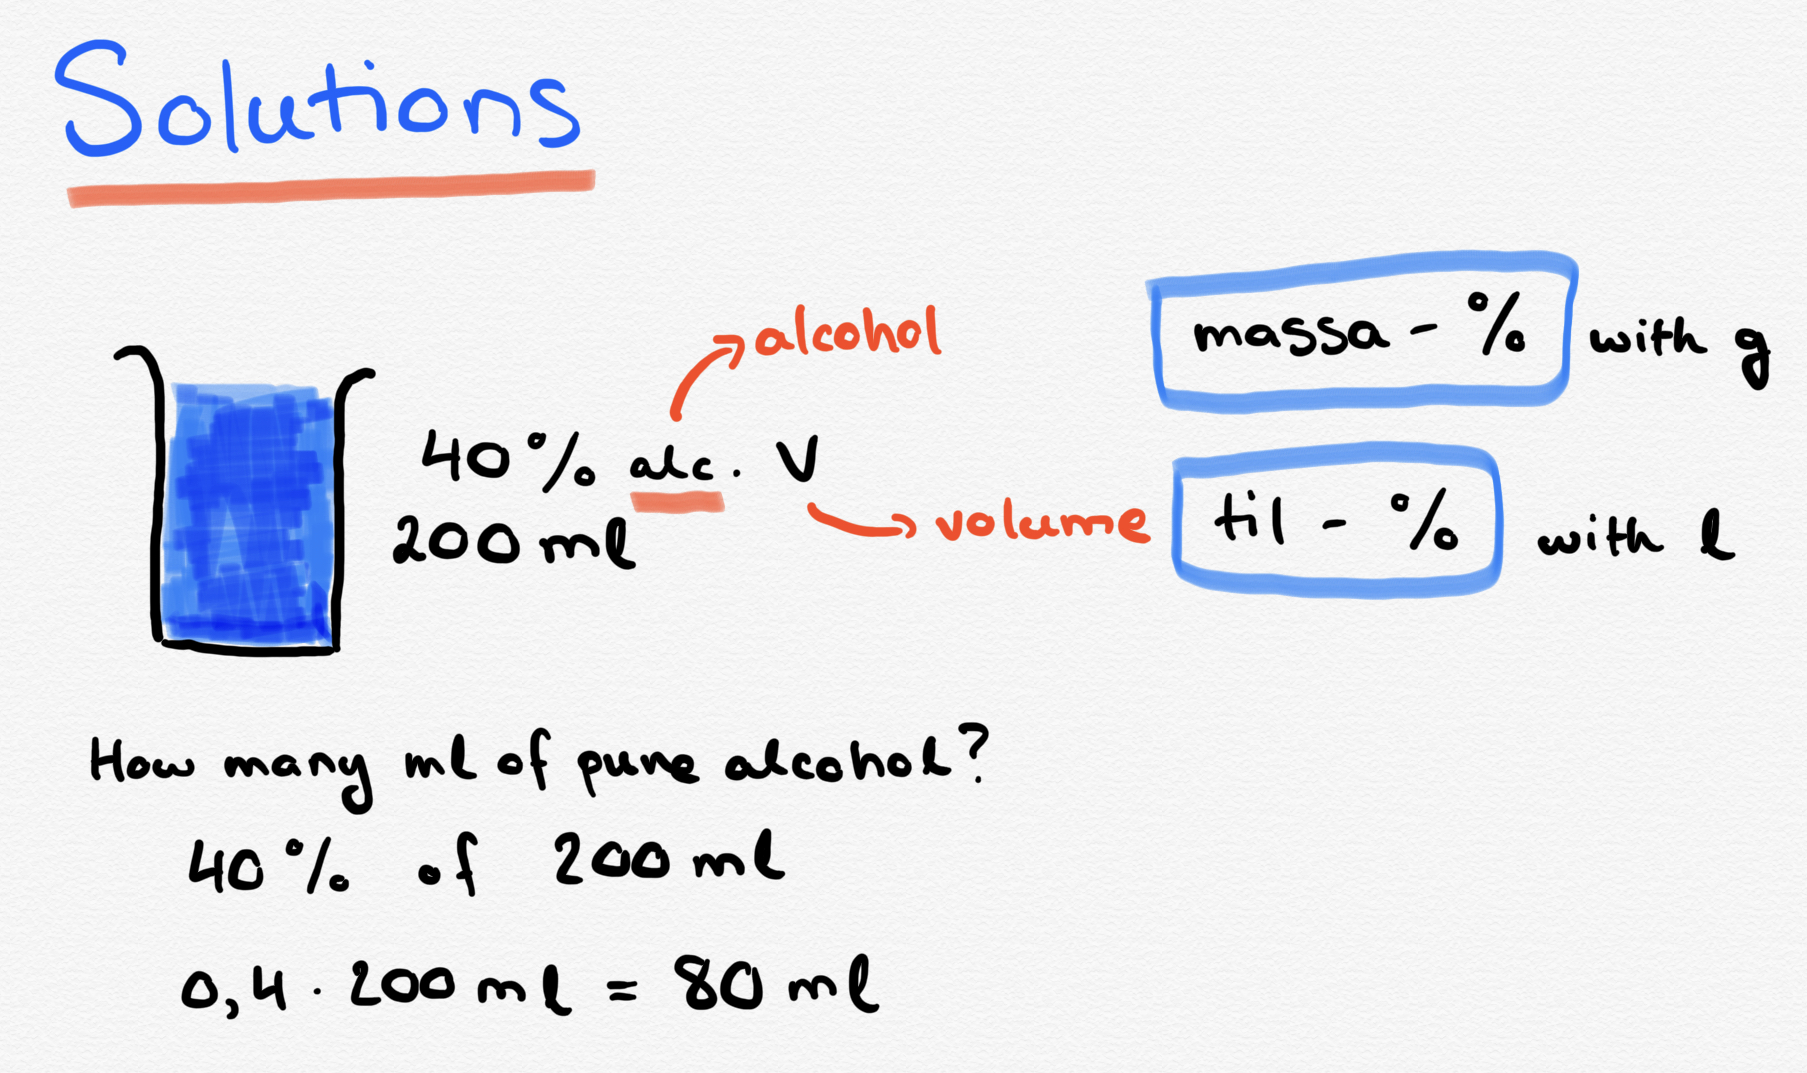 Solutions
alcohol
40% alc. V
200 ml
volume
massa - % with g
til - % with l
How many ml of pure alcohol?
40% of 200 ml
0,4 · 200 ml = 80 ml